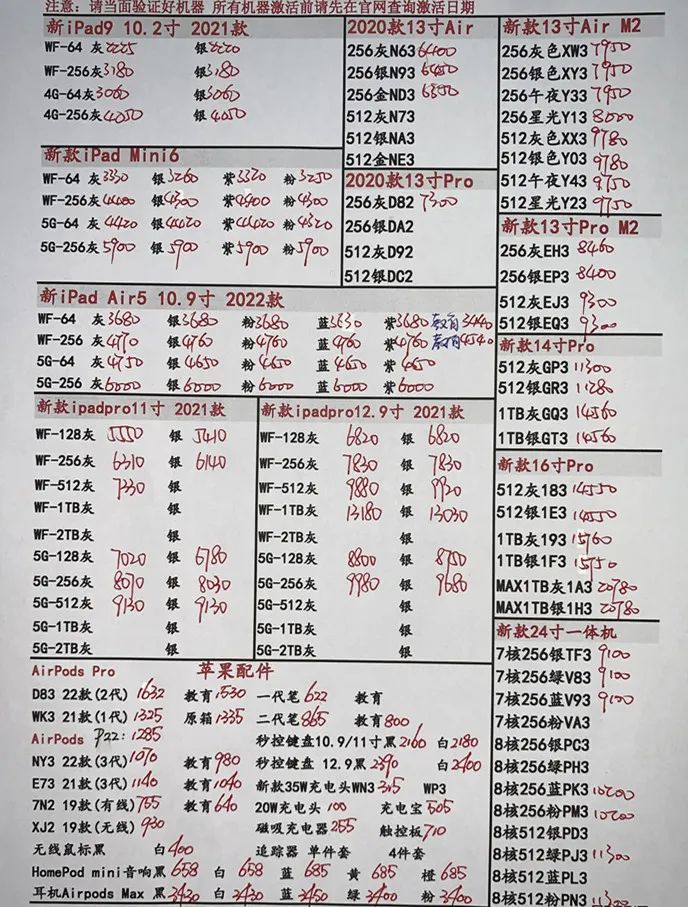 注意: 请当面验证好机器 所有机器激活前请先在官网查询激活日期
新iPad9 10.2寸 2021款
WF-64 灰2225 银2220
WF-256灰3180 银3180
4G-64灰3060 银3060
4G-256灰4050 银4050
新款iPad Mini6
WF-64 灰3330 银3260 紫3320 粉3250
WF-256灰4400 银4300 紫4400 粉4300
5G-64 灰4420 银4420 紫4420 粉4320
5G-256灰5900 银5900 紫5900 粉5900
2020款13寸Air
256灰N63 6400
256银N93 6450
256金ND3 6850
512灰N73
512银NA3
512金NE3
2020款13寸Pro
256灰D82 7300
256银DA2
512灰D92
512银DC2
新款13寸Air M2
256灰色XW3 7950
256银色XY3 7950
256午夜Y33 7950
256星光Y13 8000
512灰色XX3 9780
512银色Y03 9780
512午夜Y43 9750
512星光Y23 9750
新款13寸Pro M2
256灰EH3 8460
256银EP3 8400
512灰EJ3 9300
512银EQ3 9300
新iPad Air5 10.9寸 2022款
WF-64 灰3680 银3680 粉3680 蓝3630 紫3680 教育3440
WF-256 灰4770 银4760 粉4760 蓝4760 紫4760 教育4540
5G-64 灰4750 银4650 粉4650 蓝4650 紫4650
5G-256 灰6000 银6000 粉6000 蓝6000 紫6000
新款14寸Pro
512灰GP3 11300
512银GR3 11280
1TB灰GQ3 14560
1TB银GT3 14560
新款ipadpro11寸 2021款
WF-128灰 5550 银 5410
WF-256灰 6310 银 6140
WF-512灰 7330 银
WF-1TB灰 银
WF-2TB灰 银
5G-128灰 7020 银 6780
5G-256灰 8070 银 8030
5G-512灰 9130 银 9130
5G-1TB灰 银
5G-2TB灰 银
新款ipadpro12.9寸 2021款
WF-128灰 6820 银 6820
WF-256灰 7830 银 7830
WF-512灰 9880 银 9920
WF-1TB灰 13180 银 13030
WF-2TB灰 银
5G-128灰 8800 银 8750
5G-256灰 9980 银 9680
5G-512灰 银
5G-1TB灰 银
5G-2TB灰 银
新款16寸Pro
512灰183 14550
512银1E3 14550
1TB灰193 15760
1TB银1F3 15750
MAX1TB灰1A3 20780
MAX1TB银1H3 20780
新款24寸一体机
7核256银TF3 9100
7核256绿V83 9100
7核256蓝V93 9100
7核256粉VA3
8核256银PC3
8核256绿PH3
8核256蓝PK3 10200
8核256粉PM3 10200
8核512银PD3
8核512绿PJ3 11300
8核512蓝PL3
8核512粉PN3 11300
AirPods Pro 苹果配件
D83 22款(2代) 1632 教育1530 一代笔622 教育
WK3 21款(1代) 1325 原箱1335 二代笔865 教育800
AirPods P22: 1285 秒控键盘10.9/11寸黑2160 白2180
NY3 22款(3代)1070 教育980 秒控键盘 12.9黑2390 白2400
E73 21款(3代)1140 教育1040 新款35W充电头WN3 315 WP3
7N2 19款(有线)755 教育640 20W充电头 100 充电宝505
XJ2 19款(无线)930 磁吸充电器255 触控板710
无线鼠标黑 白400 追踪器 单件套 4件套
HomePod mini音响黑658 白 658 蓝 685 黄 685 橙 685
耳机Airpods Max 黑3430 白 3430 蓝 3430 绿 3400 粉 3400